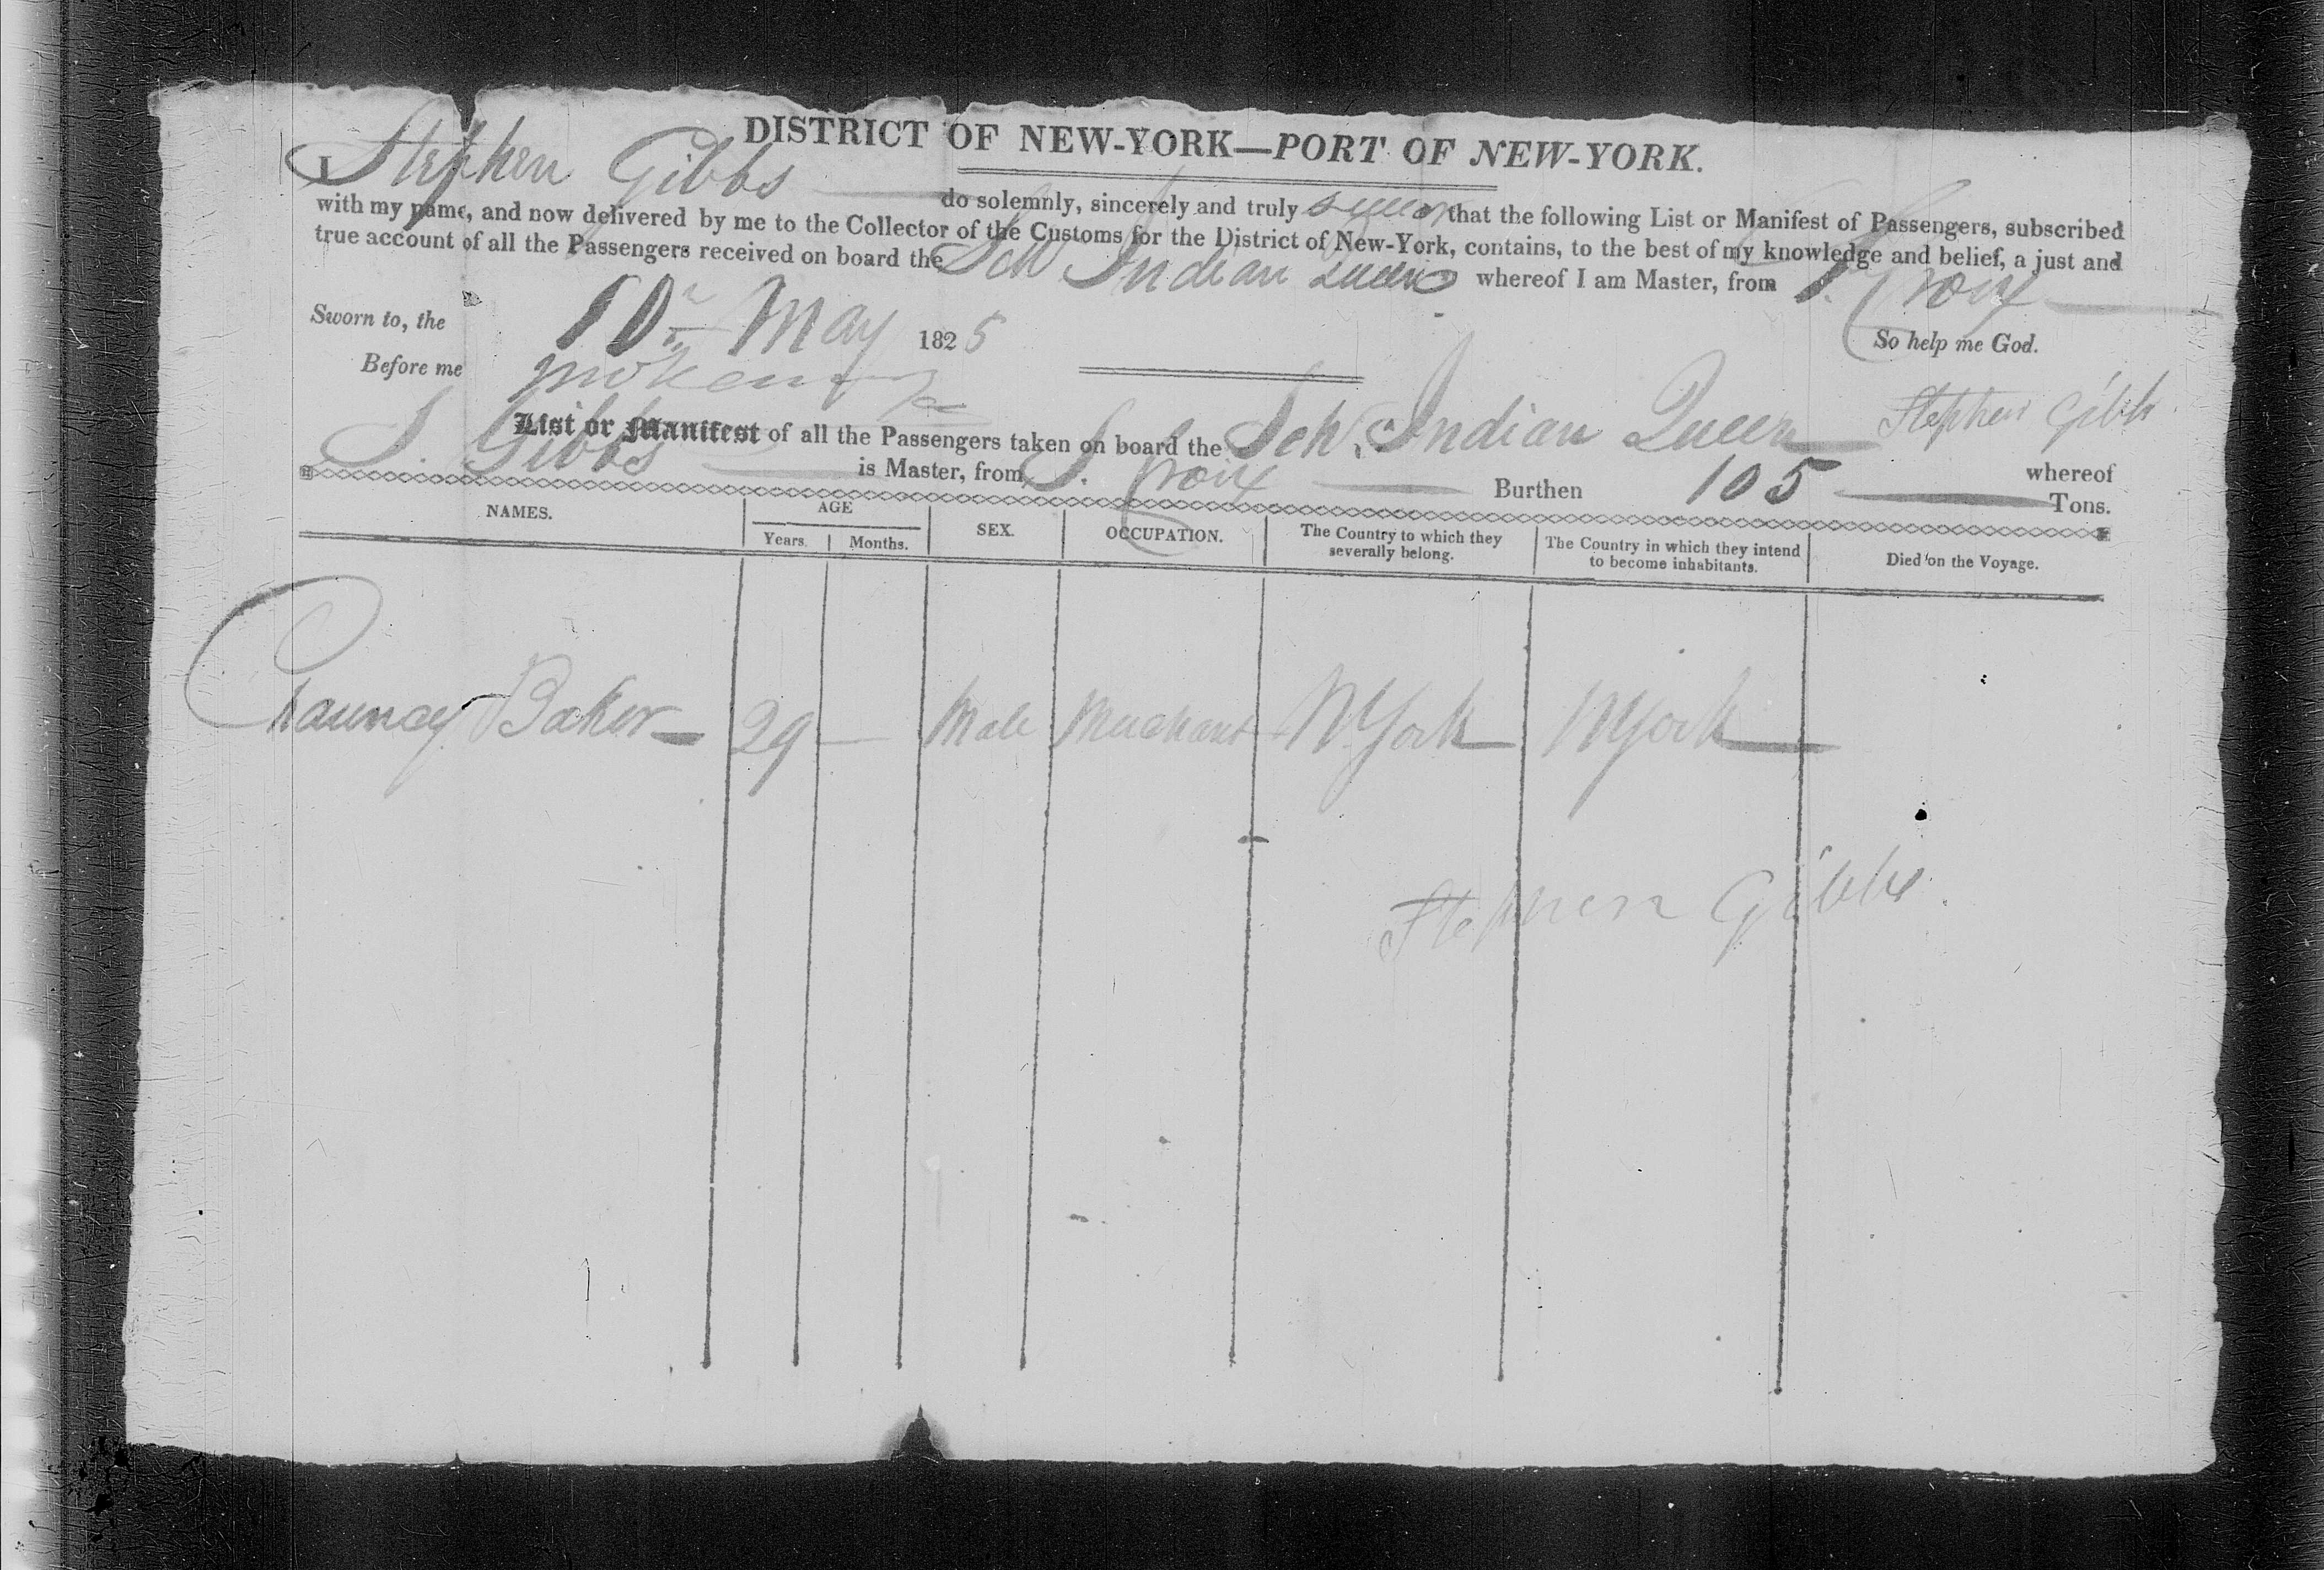 DISTRICT OF NEW-YORK—PORT OF NEW-YORK.
I Stephen Gibbs do solemnly, sincerely and truly swear that the following List or Manifest of Passengers, subscribed
with my name, and now delivered by me to the Collector of the Customs for the District of New-York, contains, to the best of my knowledge and belief, a just and
true account of all the Passengers received on board the Sch Indian Queen whereof I am Master, from S. Croix
Sworn to, the 10th May 1825 So help me God.
Before me
Stephen Gibbs
List or Manifest of all the Passengers taken on board the Sch. Indian Queen whereof
S. Gibbs is Master, from S. Croix Burthen 105 Tons.
NAMES. AGE Years. Months. SEX. OCCUPATION. The Country to which they severally belong. The Country in which they intend to become inhabitants. Died on the Voyage.
Chauncey Baker 29 — Male Merchant NYork NYork
Stephen Gibbs